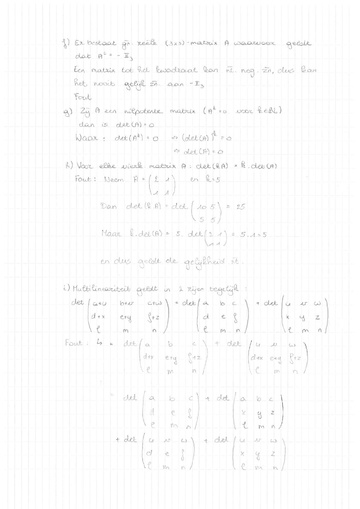 f) Er bestaat geen reële (3x3)-matrix A waarvoor geldt
dat A² = - I₃
Een matrix tot het kwadraat kan niet neg. zijn, dus kan
het nooit gelijk zijn aan -I₃
Fout
g) Zij A een nilpotente matrix (Aᵏ = 0 voor k∈ℤ)
dan is det(A) = 0
Waar: det(Aᵏ) = 0 ⇔ (det(A))ᵏ = 0
⇔ det(A) = 0
h) Voor elke vierk matrix A: det(kA) = k.det(A)
Fout: Neem A = en k=5
Dan det(kA) = det (10 5 = 25
5 5)
Maar k.det(A) = 5. det = 5.1 = 5
en dus geldt de gelijkheid
i) Multilineariteit geldt in 2 rijen tegelijk:
det (a+u b+v c+w = det (a b c + det (u v w
d+x e+y f+z d e f x y z
l m n) l m n) l m n)
Fout: = det (a b c + det (u v w
d+x e+y f+z d+x e+y f+z
l m n) l m n)
= det (a b c + det (a b c
d e f x y z
l m n) l m n)
+ det (u v w + det (u v w
d e f x y z
l m n) l m n)